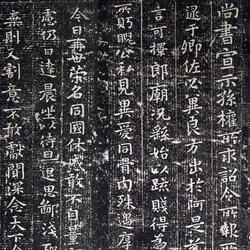 尚書宣示孫權所求詔令所
逮于卿佐必冀良方出於阿是芻
言可擇郎廟況繇始以疏賤得為
所眄睨公私見異愛同骨肉殊遇厚
今日再世榮名同國休慼敢不自量
慮仍日達晨坐以待旦退思鄙淺
棄則又割意不敢獻聞深念天下